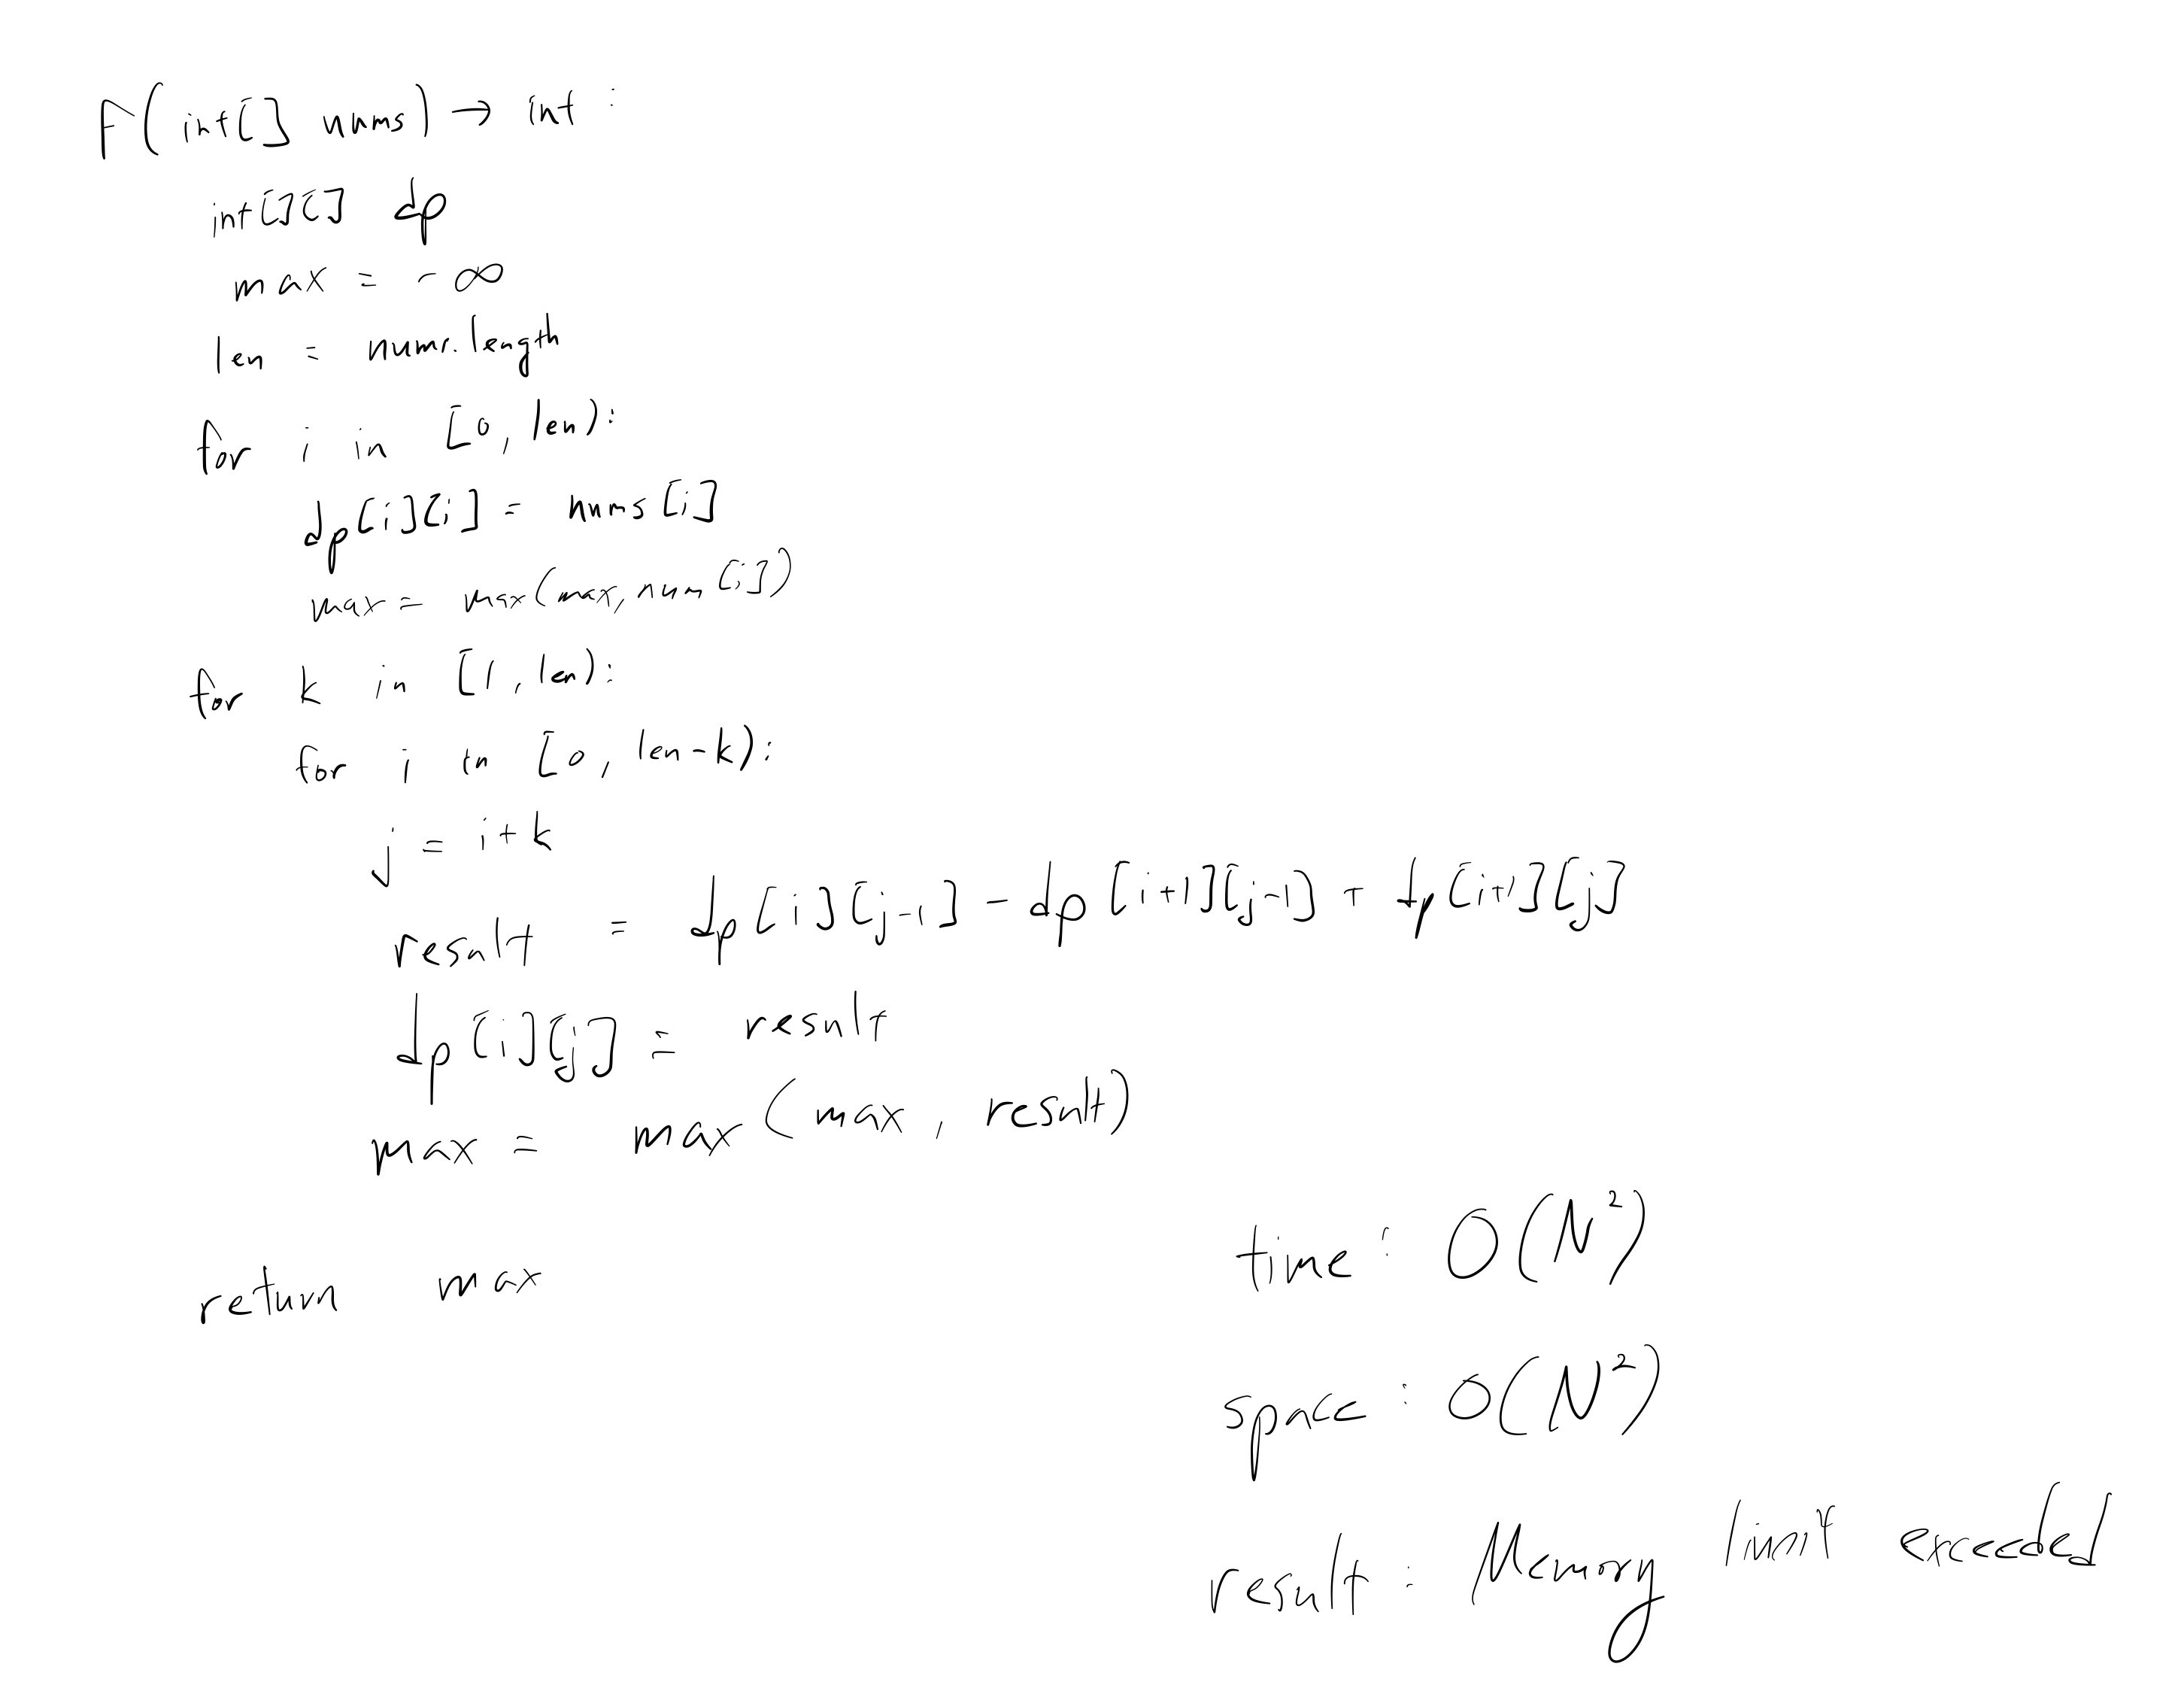 F(int[] nums) → int :
int[][] dp
max = -∞
len = nums.length
for i in [0, len):
dp[i][i] = nums[i]
max = max(max, num[i])
for k in [1, len):
for i in [0, len-k):
j = i+k
result = dp[i][j-1] - dp[i+1][j-1] + dp[i+1][j]
dp[i][j] = result
max = max(max, result)
return max
time : O(N²)
space : O(N²)
result : Memory limit exceeded